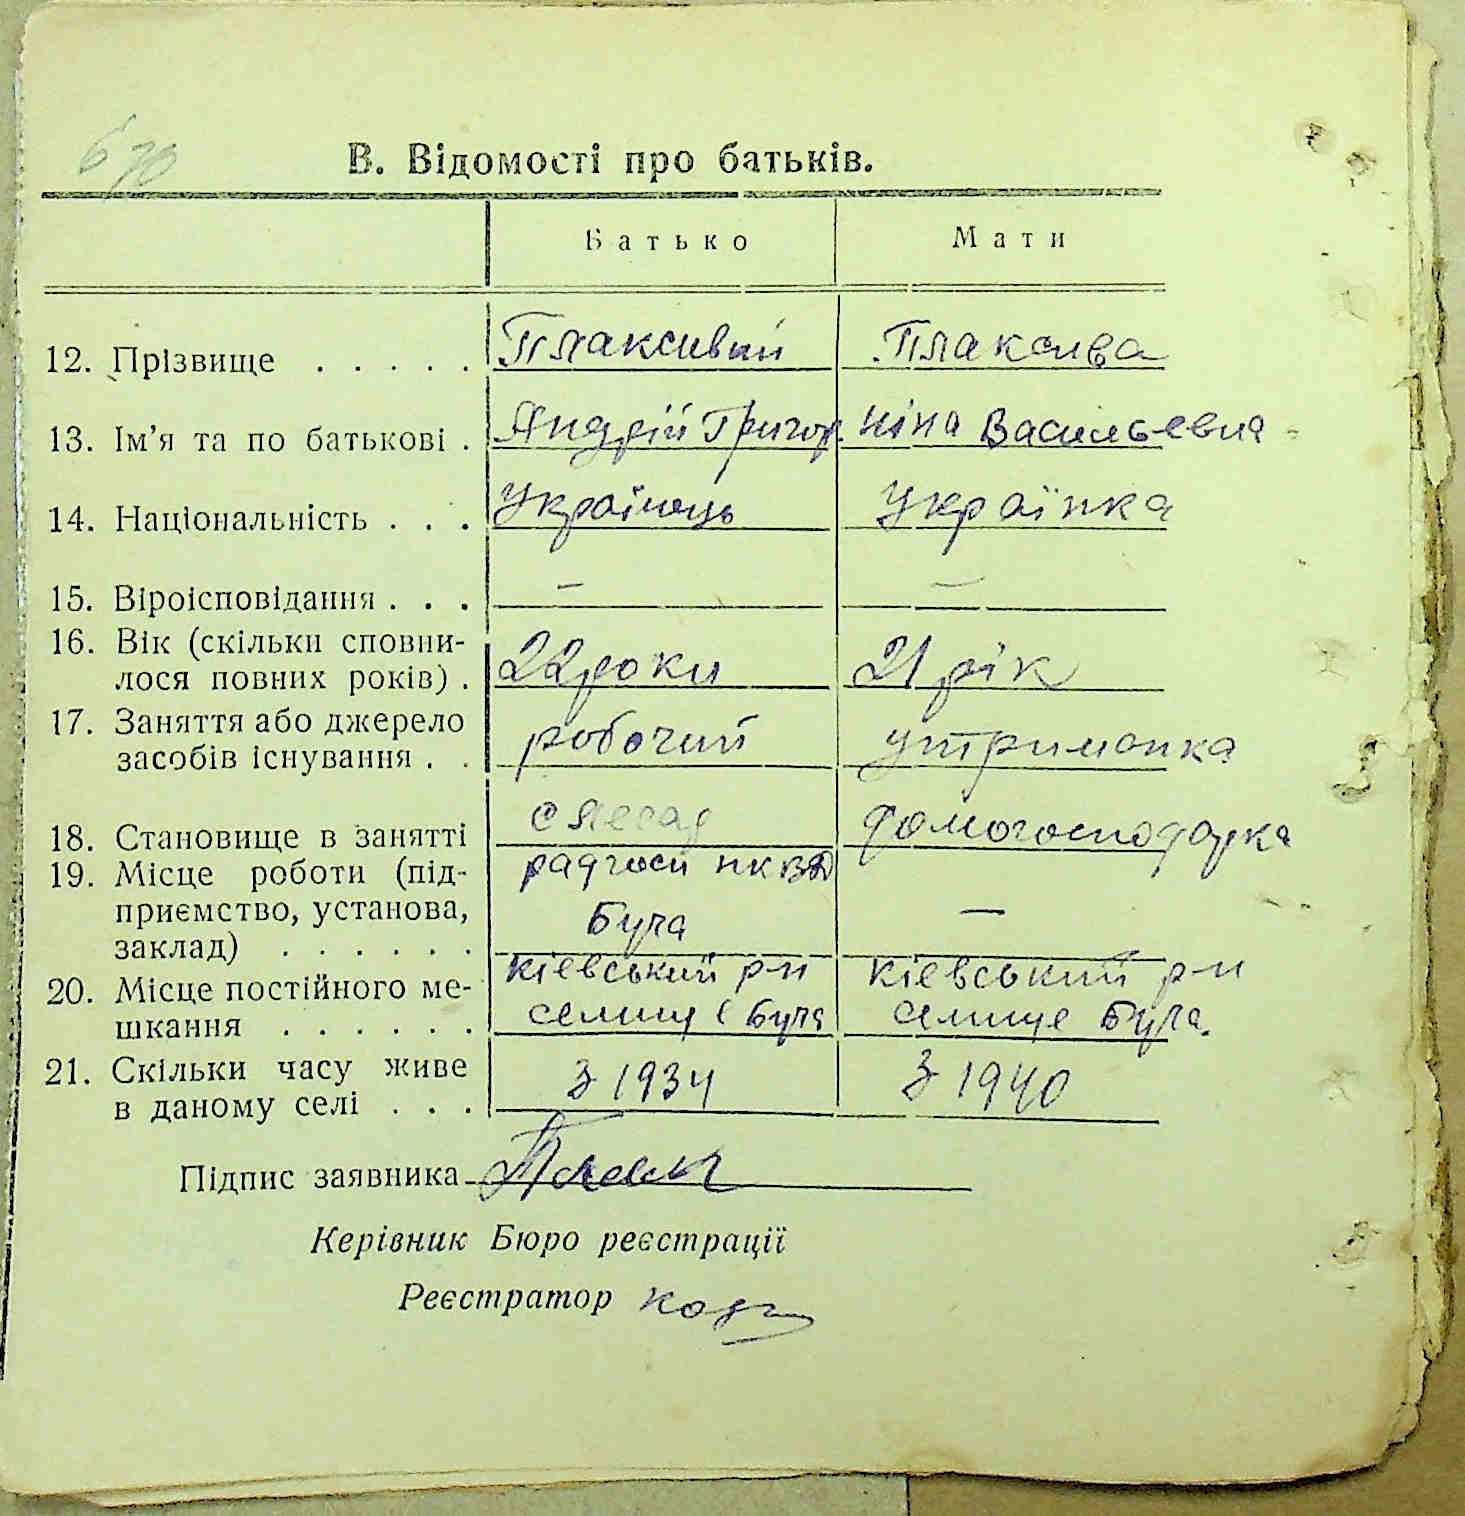 670
В. Відомості про батьків.
Батько Мати
12. Прізвище . . . . . Плаксивий Плаксива
13. Ім'я та по батькові . Андрій Григор. Ніна Васильевна
14. Національність . . . Українець Українка
15. Віроісповідання . . . — —
16. Вік (скільки сповни-
лося повних років) . 22 роки 21 рік
17. Заняття або джерело
засобів існування . . робочий утриманка
18. Становище в занятті слесар домогосподарка
19. Місце роботи (під- радгосп НКВД
приємство, установа, Буча —
заклад) . . . . . .
20. Місце постійного ме- Кіевський р-н Кіевський р-н
шкання . . . . . . селище Буча селище Буча.
21. Скільки часу живе
в даному селі . . . З 1934 З 1940
Підпис заявника
Керівник Бюро реєстрації
Реєстратор